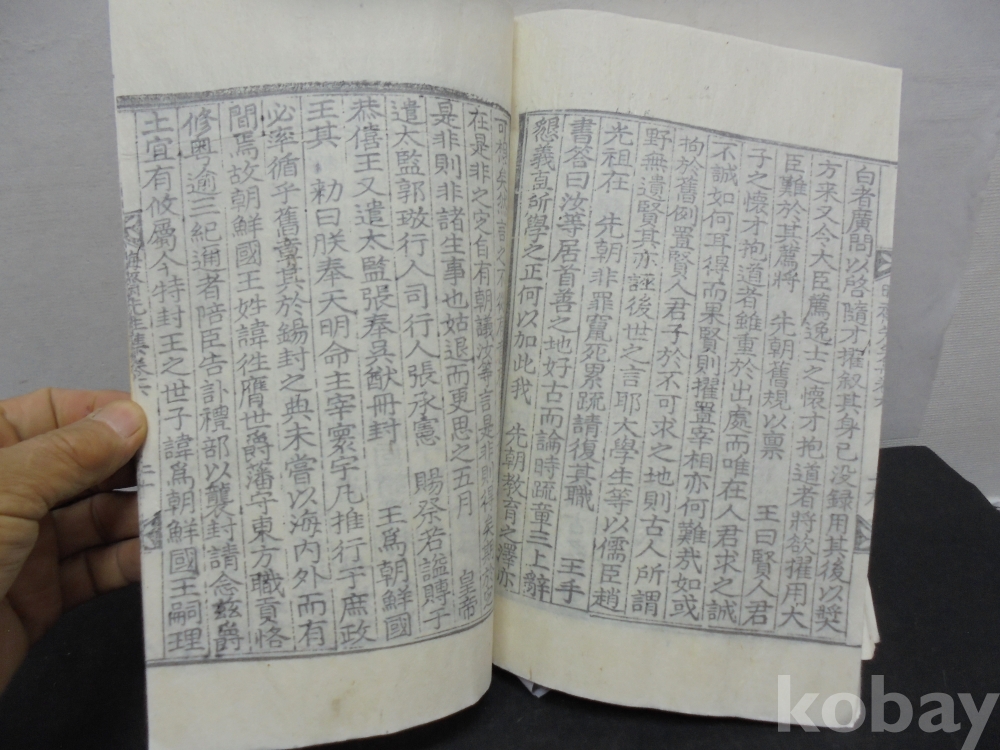 白者廣問以啓隨才擢叙其身已没録用其後以奬
方来又今大臣薦逸士之懷才抱道者將欲擢用大
臣難於其薦將 先朝舊規以禀 王曰賢人君
子之懷才抱道者雖重於出處而唯在人君求之誠
不誠如何耳得而果賢則擢置宰相亦何難㢤如或
拘於舊例置賢人君子於不可求之地則古人所謂
野無遺賢其亦誣後世之言耶大學生等以儒臣趙
光祖在 先朝非罪竄死累疏請復其職 王手
書答曰汝等居首善之地好古而論時疏章三上辭
懇義直所學之正何以加此我 先朝教育之澤亦
可想矣
在是非之定自有朝議汝等言是非則得矣
是非則非諸生事也姑退而更思之五月 皇帝
遣太監郭璈行人司行人張承憲 賜祭若謚賻于
恭僖王又遣太監張奉吳猷冊封 王爲朝鮮國
王其 勑曰朕奉天明命主宰寰宇凡推行于庶政
必率循乎舊章其於錫封之典未嘗以海内外而有
間焉故朝鮮國王姓諱徃膺世爵藩守東方職貢恪
修粤逾三紀邇者陪臣告訃禮部以襲封請念玆爵
土宜有攸屬今特封王之世子諱爲朝鮮國王嗣理
kobay